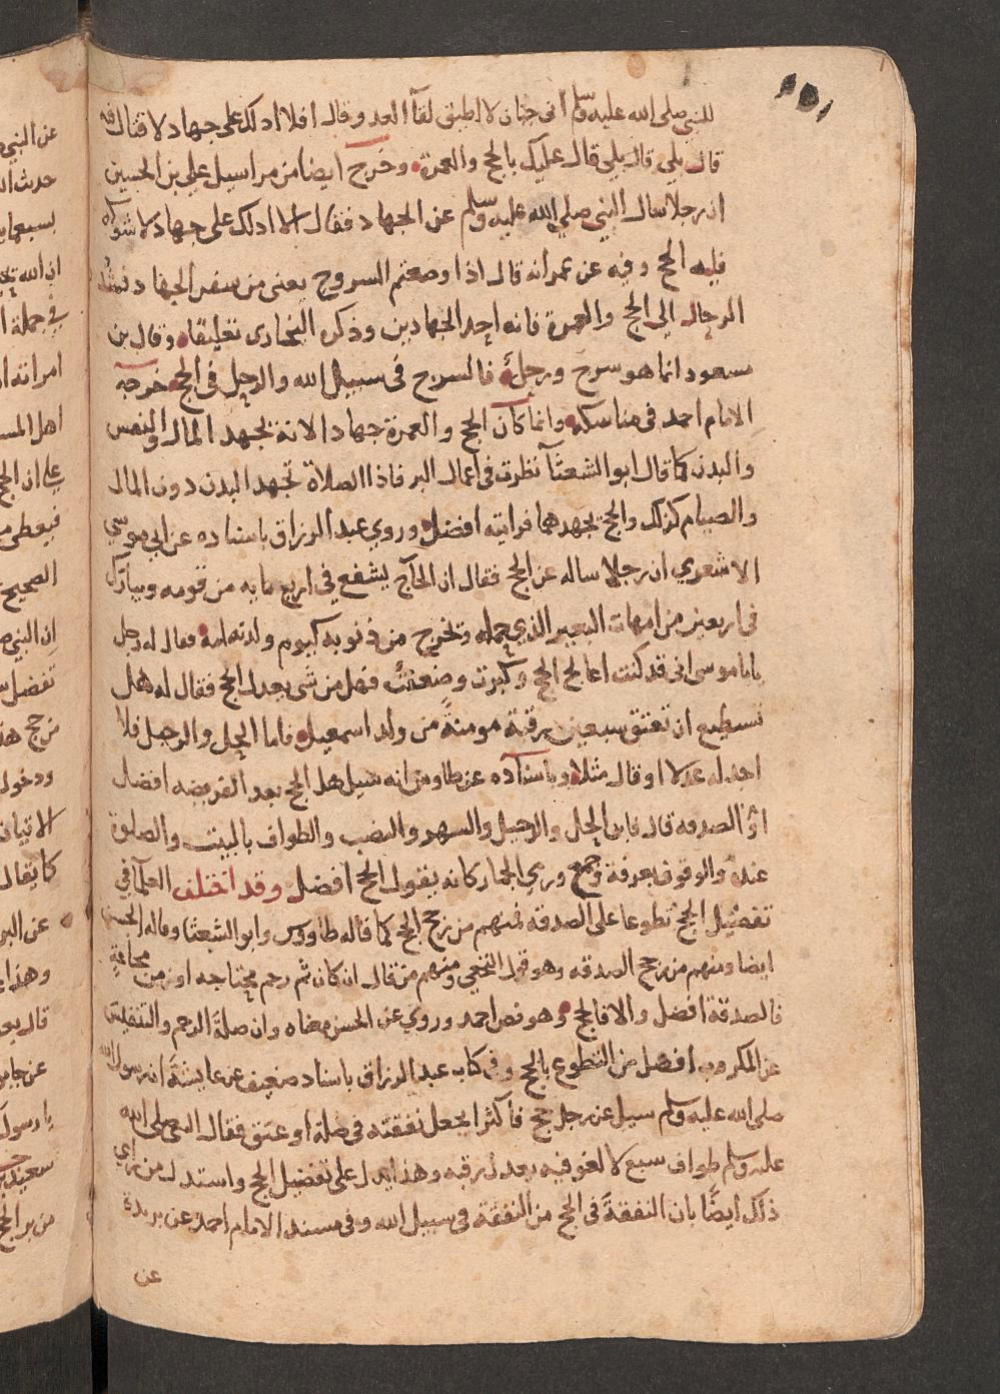 للنبي صلى الله عليه وسلم اني جبان لا اطيق لقآ العدو قال افلا ادلك على جهاد لا قتال فيه
قال بلي قال بلي قال عليك بالحج والعمرة وخرج ايضا من مراسيل علي بن الحسين
ان رجلا سال النبي صلى الله عليه وسلم عن الجهاد فقال الا ادلك على جهاد لا شوكه
فيه الحج وفيه عن عمر انه قال اذا وضعتم السروج يعني من سفر الجهاد فشدوا
الرحال الي الحج والعمرة فانه احد الجهادين وذكره البخاري تعليقا وقال بن
مسعود انما هو سرج ورحل فالسرج في سبيل الله والرحل في الحج خرجه
الامام احمد في مناسكه وانما كان الحج والعمرة جهادا لانه يجهد المال والنفس
والبدن كما قال ابو الشعثآ نظرت في اعمال البر فاذا الصلاة تجهد البدن دون المال
والصيام كذلك والحج يجهدهما فرايته افضل وروي عبد الرزاق باسناده عن ابي موسي
الاشعري ان رجلا ساله عن الحج فقال ان الحآج يشفع في اربع مايه من قومه ويبارك
في اربعين من امهات البعير الذي حمله وتخرج من ذنوبه كيوم ولدته امه فقال له رجل
ياابا موسى اني قد كنت اعالج الحج وكبرت وضعفت فهل من شي يعدل الحج فقال له هل
تستطيع ان تعتق سبعين رقبة مومنة من ولد اسمعيل فاما الحل والرحيل فلا
اجد له عدلا او قال مثلا وباسناده عن طاوس انه سيل هل الحج بعد الفريضه افضل
او الصدقه قال فاين الحل والرحيل والسهر والنصب والطواف بالبيت والصلوة
عنده والوقوف بعرفة وجمع ورمي الجمار كانه يقول الحج افضل وقد اختلف العلمآ في
تفضيل الحج تطوعا على الصدقه فمنهم من رجح الحج كما قاله طاووس وابو الشعثا وقاله الحسن
ايضا ومنهم من رجح الصدقه وهو قول النخعي ومنهم من قال ان كان ثم رحم محتاجه او زمن مجاعة
فالصدقة افضل والا فالحج وهو نص احمد وروي عن الحسن معناه وان صلة الرحم والتنفيس
عن المكروب افضل من التطوع بالحج وفي كتاب عبد الرزاق باسناد ضعيف عن عايشة ان رسول الله
صلى الله عليه وسلم سيل عن رجل حج فاكثر ايجعل نفقته في صلة او عتق فقال النبي صلى الله
عليه وسلم طواف سبع لا لغو فيه يعدل رقبه وهذا يدل على تفضيل الحج واستدل من راي
ذلك ايضا بان النفقة في الحج من النفقة في سبيل الله وفي مسند الامام احمد عن بريدة
عن